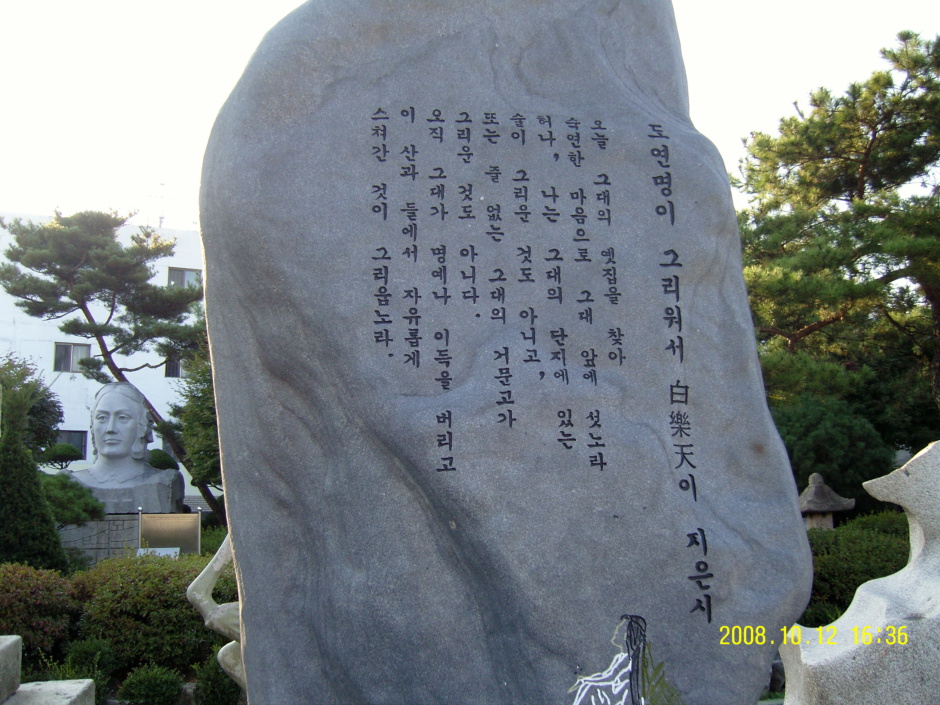 도연명이 그리워서 白樂天이 지은시
오늘 그대의 옛집을 찾아
숙연한 마음으로 그대 앞에 섯노라
허나, 나는 그대의 단지에 있는
술이 그리운 것도 아니고,
또는 줄 없는 그대의 거문고가
그리운 것도 아니다.
오직 그대가 명예나 이득을 버리고
이 산과 들에서 자유롭게
스쳐간 것이 그리웁노라.
2008.10.12 16:36